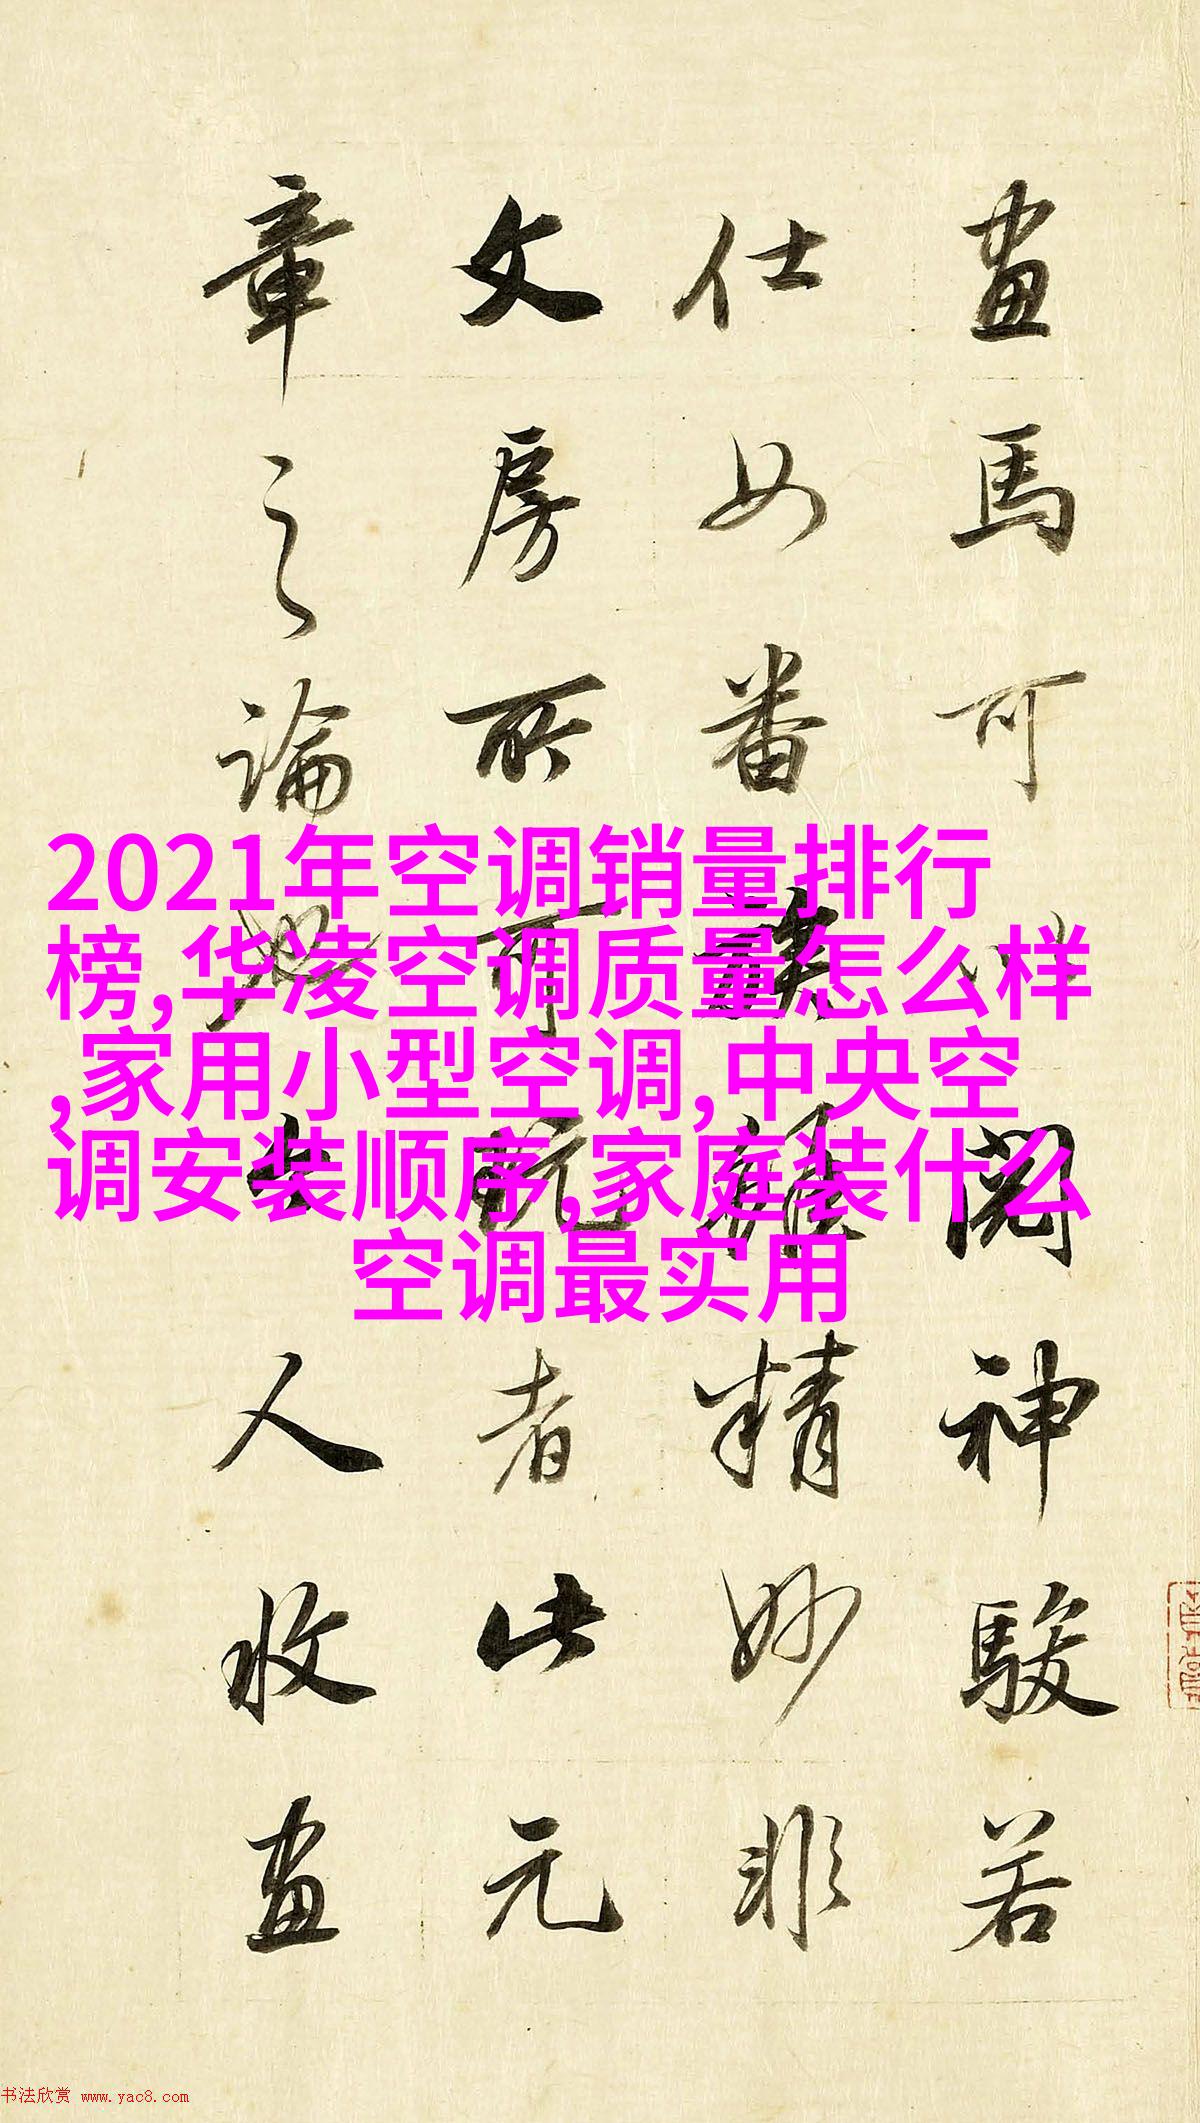 2021年空调销量排行
榜,华凌空调质量怎么样
,家用小型空调,中央空
调安装顺序,家庭装什么
空调最实用
畫馬可以閱神駿若
仕女番族雖精妙非
文房所可玩者此元
章之論人收畫
书法欣赏 www.yac8.com